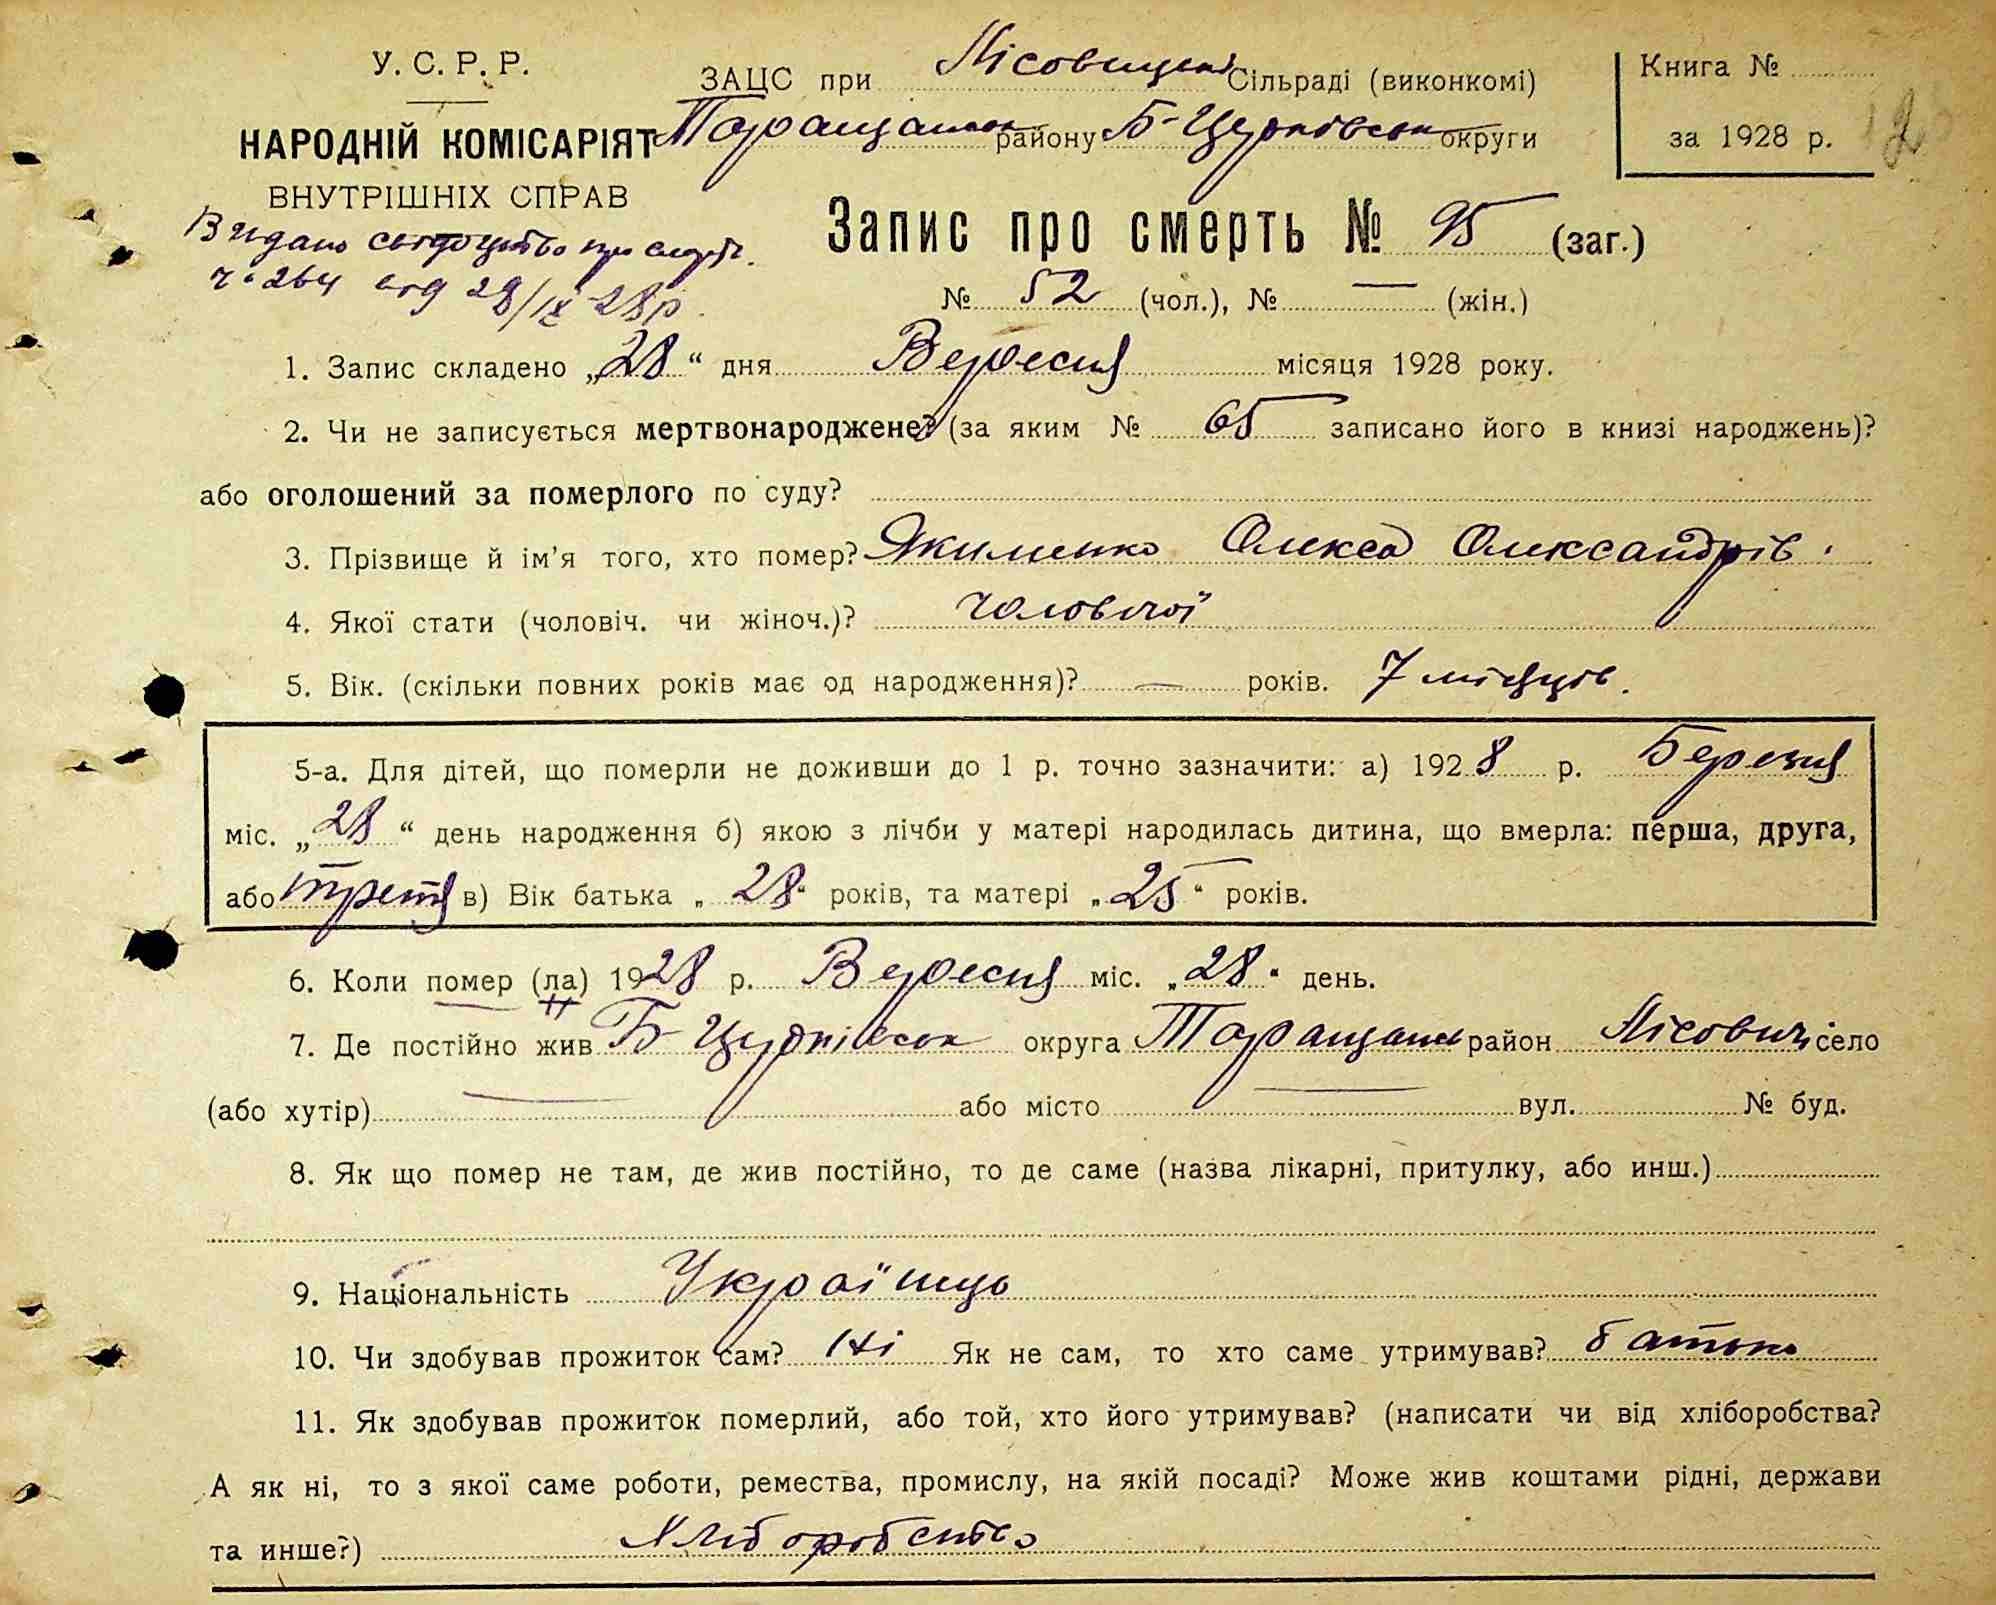 У. С. Р. Р.
НАРОДНІЙ КОМІСАРІЯТ
ВНУТРІШНІХ СПРАВ
Видано свідоцтво про смерть.
ч. 264 від 28/IX 28р.
ЗАЦС при Лісовицькі Сільраді (виконкомі)
Таращанськ району Б-Церківськ округи
Книга №
за 1928 р.
Запис про смерть № 95 (заг.)
№ 52 (чол.), № — (жін.)
1. Запис складено „28“ дня Вересня місяця 1928 року.
2. Чи не записується мертвонароджене? (за яким № 65 записано його в книзі народжень)?
або оголошений за померлого по суду?
3. Прізвище й ім’я того, хто помер? Якименко Олекса Олександрів.
4. Якої стати (чоловіч. чи жіноч.)? чоловічої
5. Вік. (скільки повних років має од народження)? — років. 7 місяців.
5-а. Для дітей, що померли не доживши до 1 р. точно зазначити: а) 1928 р. Березня
міс. „28“ день народження б) якою з лічби у матері народилась дитина, що вмерла: перша, друга,
або третя в) Вік батька „28“ років, та матері „25“ років.
6. Коли помер (ла) 1928 р. Вересня міс. „28“ день.
7. Де постійно жив Б-Церківськ округа Таращанськ район Лісовичі село
(або хутір) — або місто — вул. № буд.
8. Як що помер не там, де жив постійно, то де саме (назва лікарні, притулку, або инш.)
9. Національність Українець
10. Чи здобував прожиток сам? Ні Як не сам, то хто саме утримував? батько
11. Як здобував прожиток померлий, або той, хто його утримував? (написати чи від хліборобства?
А як ні, то з якої саме роботи, ремества, промислу, на якій посаді? Може жив коштами рідні, держави
та инше?) Хліборобство